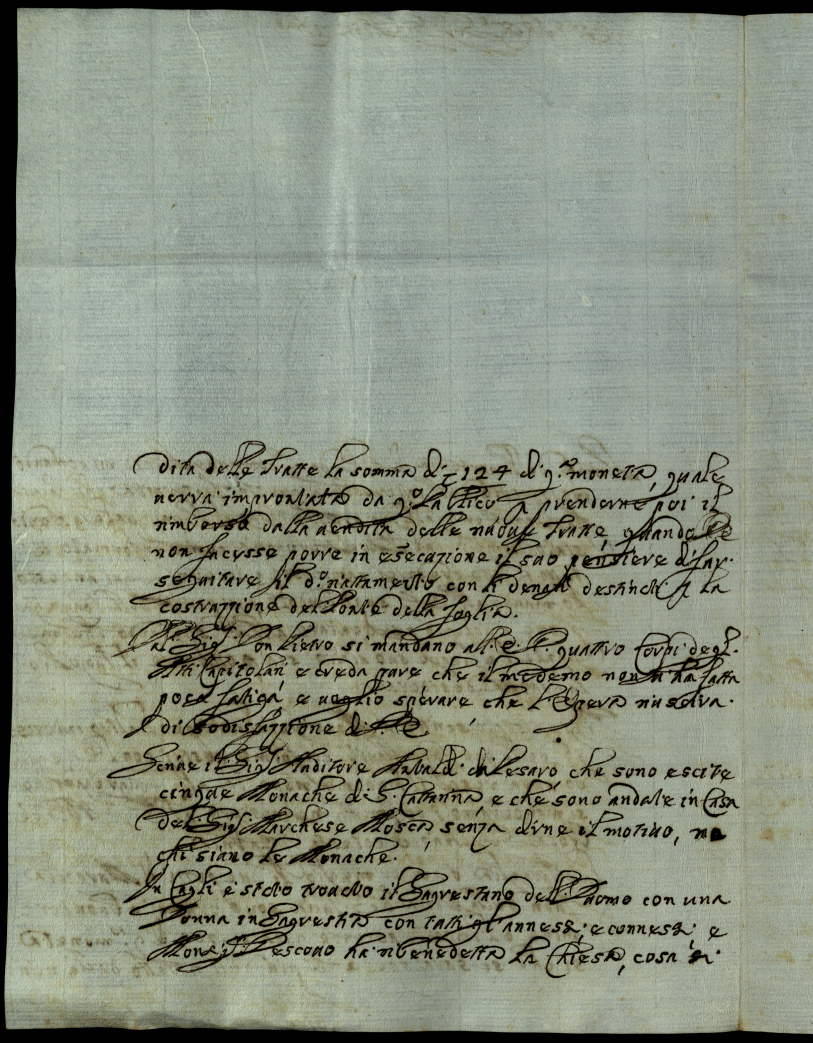 dita delle Tratte la somma di 124 di q.a moneta, quale
verrà improntata da q.o Publico p prenderne poi il
rimborso dalla vendita delle nuove Tratte, quando
non facesse porre in essecuzione il suo pensiere di far
seguitare il d.o nattamento con li denari destinati p la
costruzzione del Ponte della foglia.
Dal Sig.r Don Pietro si mandano all' quattro Corpi degl'
Atti Capitolari e creda pure che il medemo non vi ha fatta
poca fatiga, e voglio sperare che l'Opera riuscirà
di sodisfazzione di
Scrive il Sig.r Auditore di Pesaro che sono escite
cinque Monache di S. Cattarina, e che sono andate in Casa
del Sig.r Marchese Mosca senza dirne il motivo, ne
chi siano le Monache.
In Cagli è stato trovato il Sagrestano del Duomo con una
Donna in Sagrestia con tutti gl'annessi, e connessi, e
Mons.r Vescovo ha ribenedetta la Chiesa, cosa